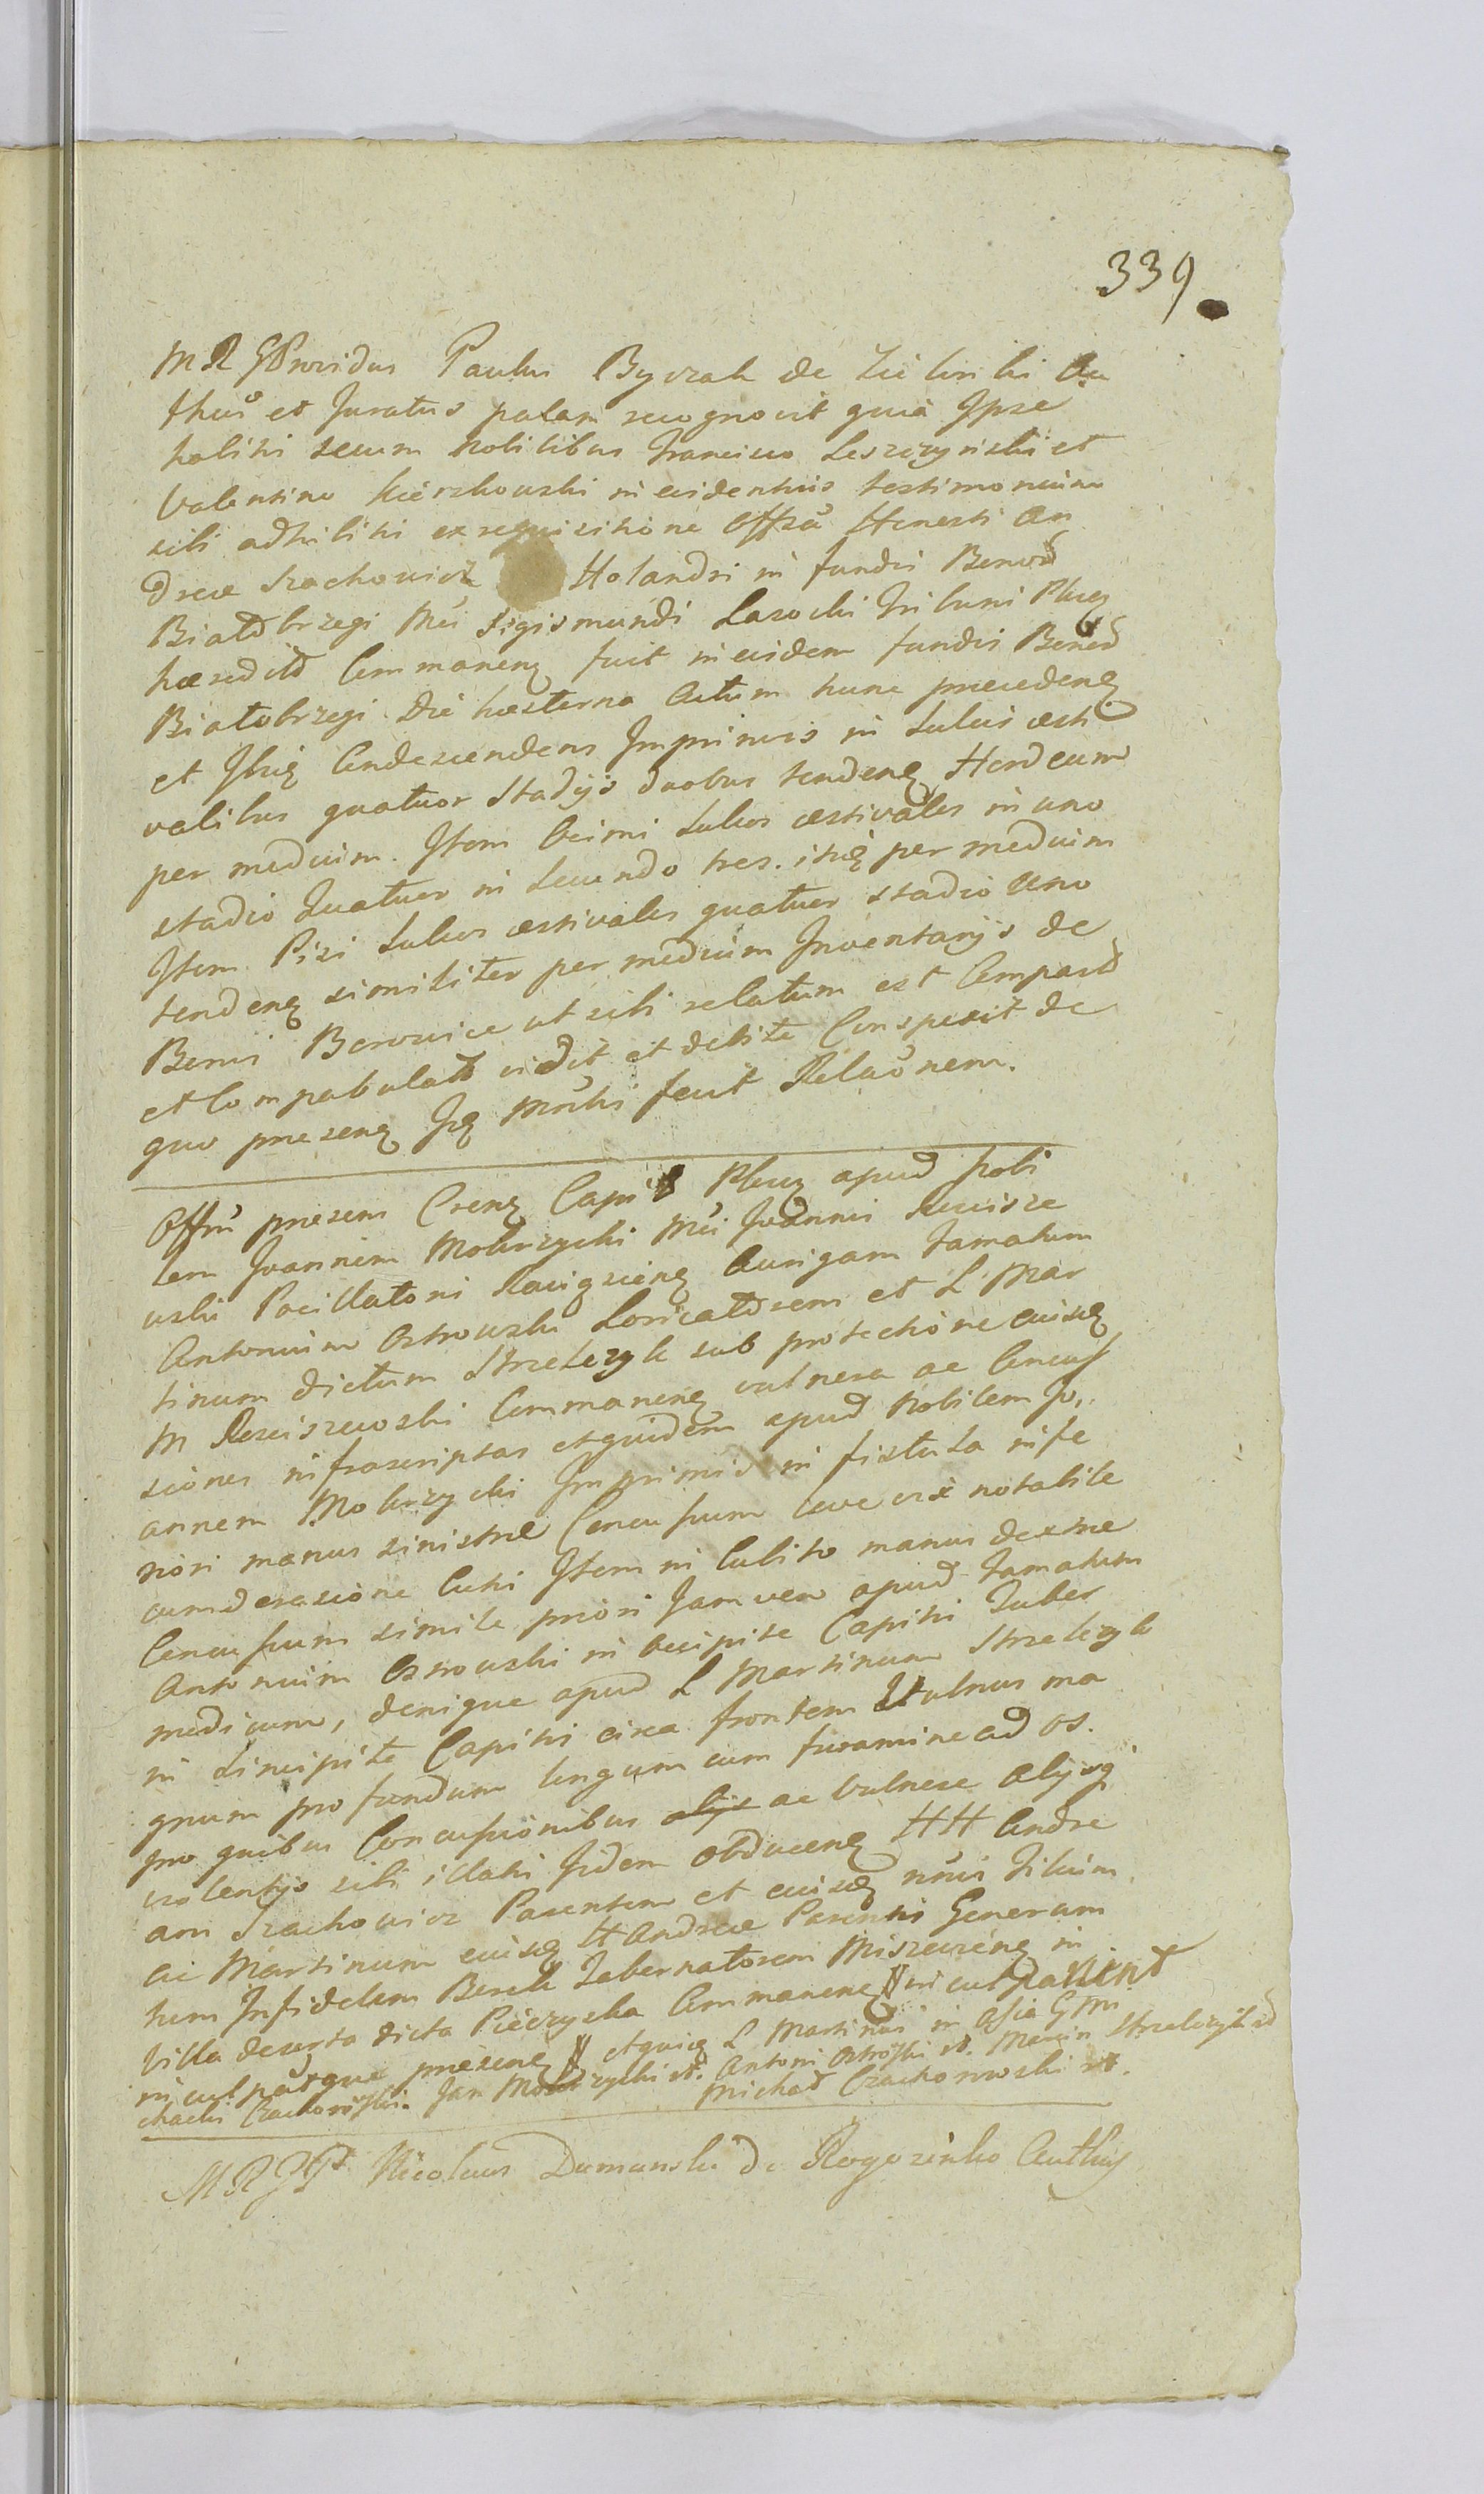 339
M R G Providus Paulus Byczak de
thus et Juratus palam recognovit quia Ipse
habitis secum Nobilibus Francisco Leszczynski et
Valentino Kierzkowski in evidentius testimonium
sibi adhibitis ex requisitione Offsa Honesti An
dreæ Szachowicz Holandri in fundis Bonorũ
Białobrzegi Mci Sigismundi Lasocki Tribuni Plocq
hæredit Commanenq fuit in eisdem fundis Bonorũ
Białobrzegi die hesterna Actum hunc præcedenq
et Ibiq Condescendens Imprimis in Sulcis æsti
valibus quatuor Stadijs duobus tendenq Hordeum
per medium. Item Avenæ Sulcos æstivales in uno
stadio Quatuor in Secundo tres. itiq per medium
Item Pisi Sulcos æstivales quatuor stadio Uno
tendenq similiter per medium Inventarijs de
Bonis Borowice ut sibi relatum est Compast
et Compabulat vidit et debite Conspexit de
quo præsenq Iq Mihi fecit Relaõnem.
Offm præsens Crenq Capit Plocq apud Nobi
lem Joannem Mokrzycki Mci Joannis Rociszew
ski Pocillatoris Raciązienq Aurigam Famatum
Antonium Ostrowski Loricatorem et L Mar
tinum dictum Strzelczyk sub protectione eiusdq
M Rosciszewski Commanenq vulnera ac Concus
siones infrascriptas et quidem apud Nobilem Jo
annem Mokrzycki Imprimis in fistula infe
riori manus sinistræ Concussum leve vix notabile
cum derasione Cutis Item in Cubito manus dextræ
Concussum simile priori Jam vero apud Famatum
Antonium Ostrowski in Occipite Capitis Tuber
medicum, denique apud L Martinum Strzelczyk
in Sincipite Capitis circa frontem Vulnus ma
gnum profundum longum cum foramine ad os.
pro quibus Concussionibus alijs ac Vulnere Alijsq
violentijs sibi illatis Ijdem Obducenq HH Andre
am Szachowicz Parentem et eiusdq nõis Filium
ac Martinum eiusdq H Andreæ Parentis Generum
tum Infidelem Berek Tabernatorem Miszewienq in
Villa deserta dicta Pieczyska Commanenq inculpaverunt
inculpatque præsenq et quicq L Martinus in Asia Gm
chacki Czachorowski. Jan Mokrzycki st. Antoni Ostrowski st. Marcin Strzelczyk st
Michał Czachorowski st.
M R G P Nicolaus Dumanski de Rogozinko Authus